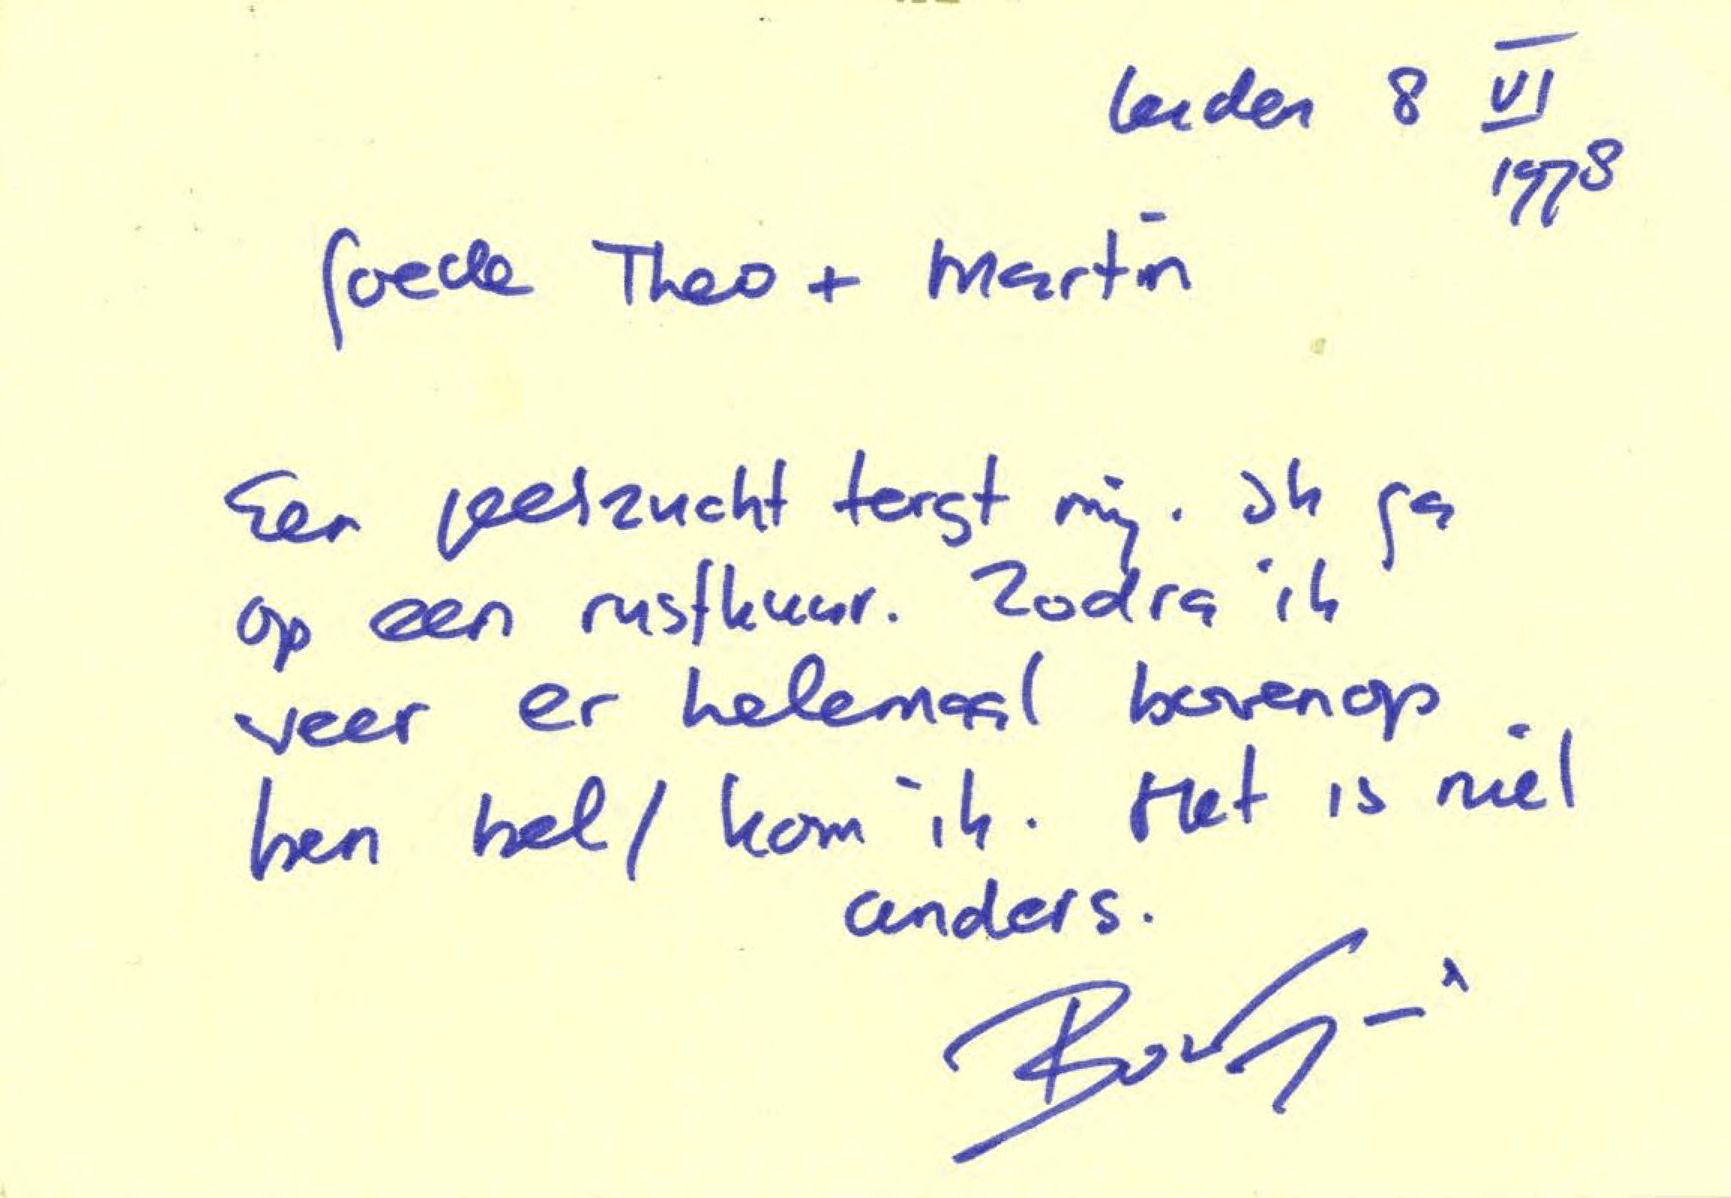 Leiden 8 VI
1978
Goede Theo + Martin
Een geelzucht tergt mij. Ik ga
op een rustkuur. Zodra ik
weer er helemaal bovenop
ben bel / kom ik. Het is niet
anders.